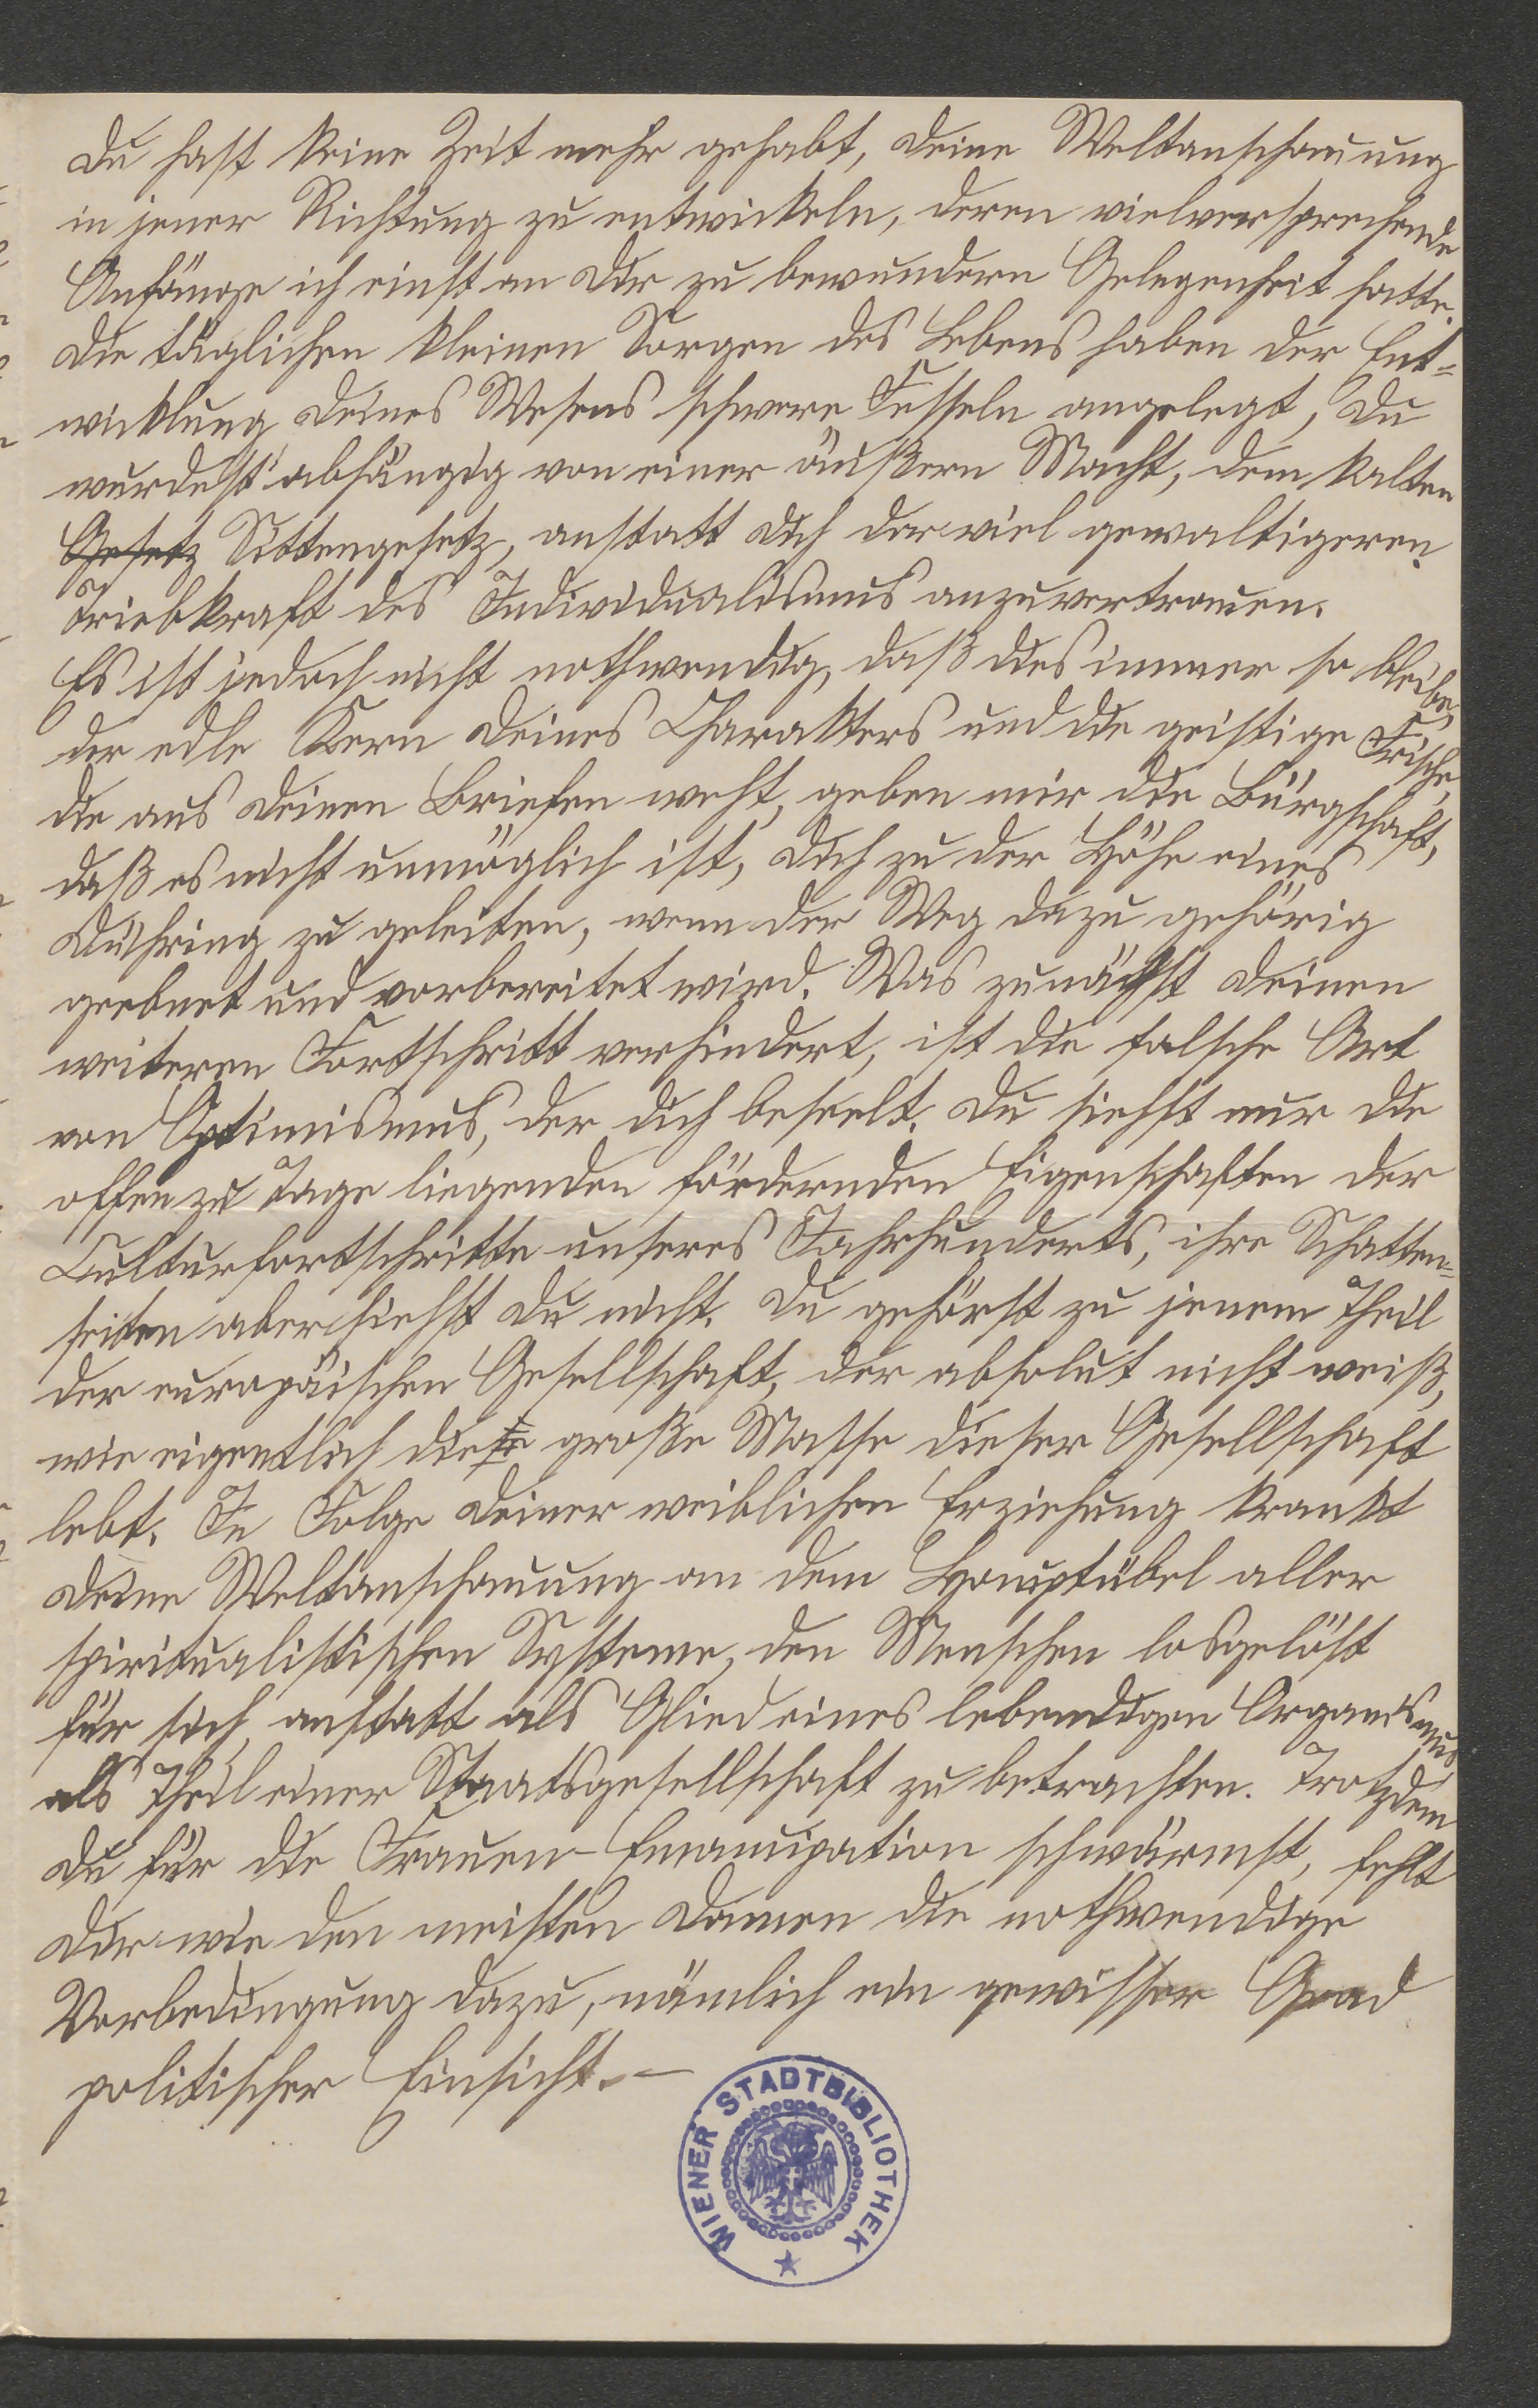 Du hast keine Zeit mehr gehabt, Deine Weltanschauung
in jener Richtung zu entwickeln, deren vielversprechende
Anfänge ich einst an Dir zu bewundern Gelegenheit hatte.
Die täglichen kleinen Sorgen des Lebens haben der Ent=
wicklung Deines Wesens schwere Fesseln angelegt, Du
wurdest abhängig von einer äußern Macht, dem kalten
Gesetz Sittengesetz, anstatt Dich der viel gewaltigeren
Triebkraft des Individualismus anzuvertrauen.
Es ist jedoch nicht nothwendig, daß dies immer so bleibe,
der edle Kern Deines Charakters und die geistige Frische,
die aus Deinen Briefen weht, geben mir die Bürgschaft,
daß es nicht unmöglich ist, Dich zu der Höhe eines
Dühring zu geleiten, wenn der Weg dazu gehörig
geebnet und vorbereitet wird. Was zunächst Deinen
weiteren Fortschritt verhindert, ist die falsche Art
von Optimismus, der Dich beseelt. Du siehst nur die
offen zu Tage liegenden fördernden Eigenschaften der
Culturfortschritte unseres Jahrhunderts, ihre Schatten=
seiten aber siehst Du nicht. Du gehörst zu jenem Theil
der europäischen Gesellschaft, der absolut nicht weiß,
wie eigentlich die große Masse dieser Gesellschaft
lebt. In Folge Deiner weiblichen Erziehung krankt
Deine Weltanschauung an dem Hauptübel aller
spiritualistischen Systeme, den Menschen losgelöst
für sich, anstatt als Glied eines lebendigen Organismus,
als Theil einer Staatsgesellschaft zu betrachten. Trotzdem
Du für die Frauen-Emancipation schwärmst, fehlt
Dir wie den meisten Damen die nothwendige
Vorbedingung dazu, nämlich ein gewisser Grad
politischer Einsicht. –
WIENER STADTBIBLIOTHEK